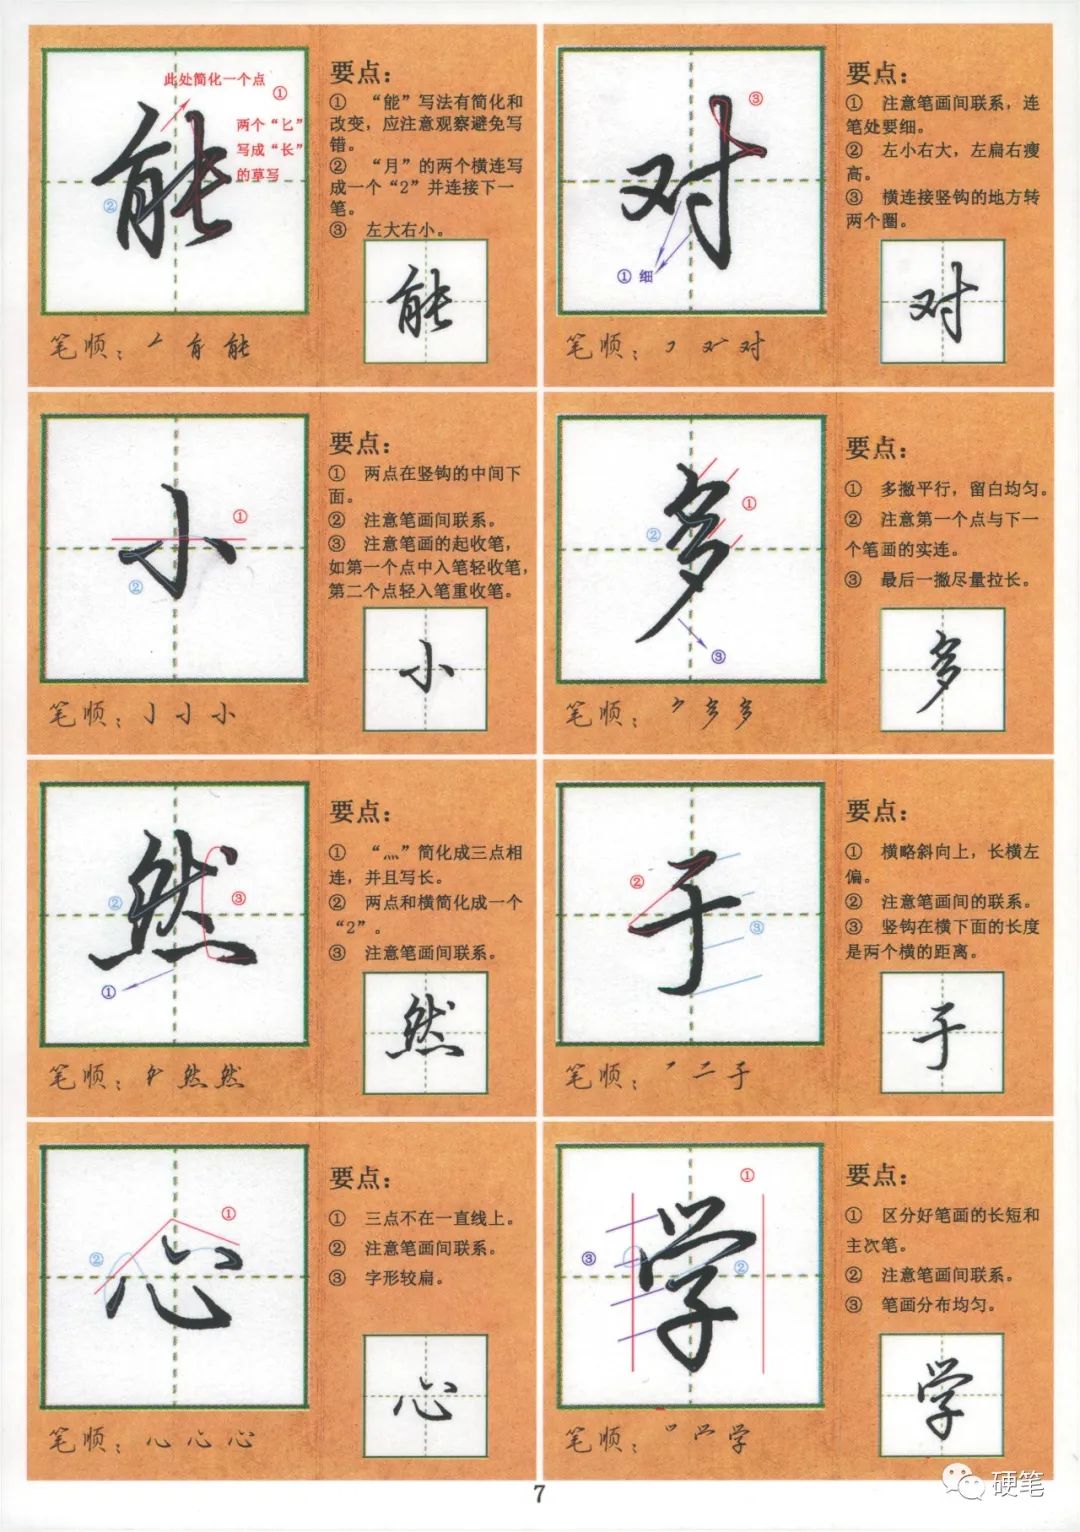 能
此处简化一个点
①
两个“匕”
写成“长”
的草写
②
要点：
① “能”写法有简化和
改变，应注意观察避免写
错。
② “月”的两个横连写
成一个“2”并连接下一
笔。
③ 左大右小。
能
笔顺： 能
对
③
① 细
要点：
① 注意笔画间联系，连
笔处要细。
② 左小右大，左扁右瘦
高。
③ 横连接竖钩的地方转
两个圈。
对
笔顺： 对
小
①
②
要点：
① 两点在竖钩的中间下
面。
② 注意笔画间联系。
③ 注意笔画的起收笔，
如第一个点中入笔轻收笔，
第二个点轻入笔重收笔。
小
笔顺：亅 小
多
①
②
③
要点：
① 多撇平行，留白均匀。
② 注意第一个点与下一
个笔画的实连。
③ 最后一撇尽量拉长。
多
笔顺： 多
然
②
③
①
要点：
① “灬”简化成三点相
连，并且写长。
② 两点和横简化成一个
“2”。
③ 注意笔画间联系。
然
笔顺： 然 然
于
②
③
要点：
① 横略斜向上，长横左
偏。
② 注意笔画间的联系。
③ 竖钩在横下面的长度
是两个横的距离。
于
笔顺：一 二 于
心
①
②
要点：
① 三点不在一直线上。
② 注意笔画间联系。
③ 字形较扁。
心
笔顺：心 心 心
学
①
③
②
要点：
① 区分好笔画的长短和
主次笔。
② 注意笔画间联系。
③ 笔画分布均匀。
学
笔顺： 学
7
硬笔